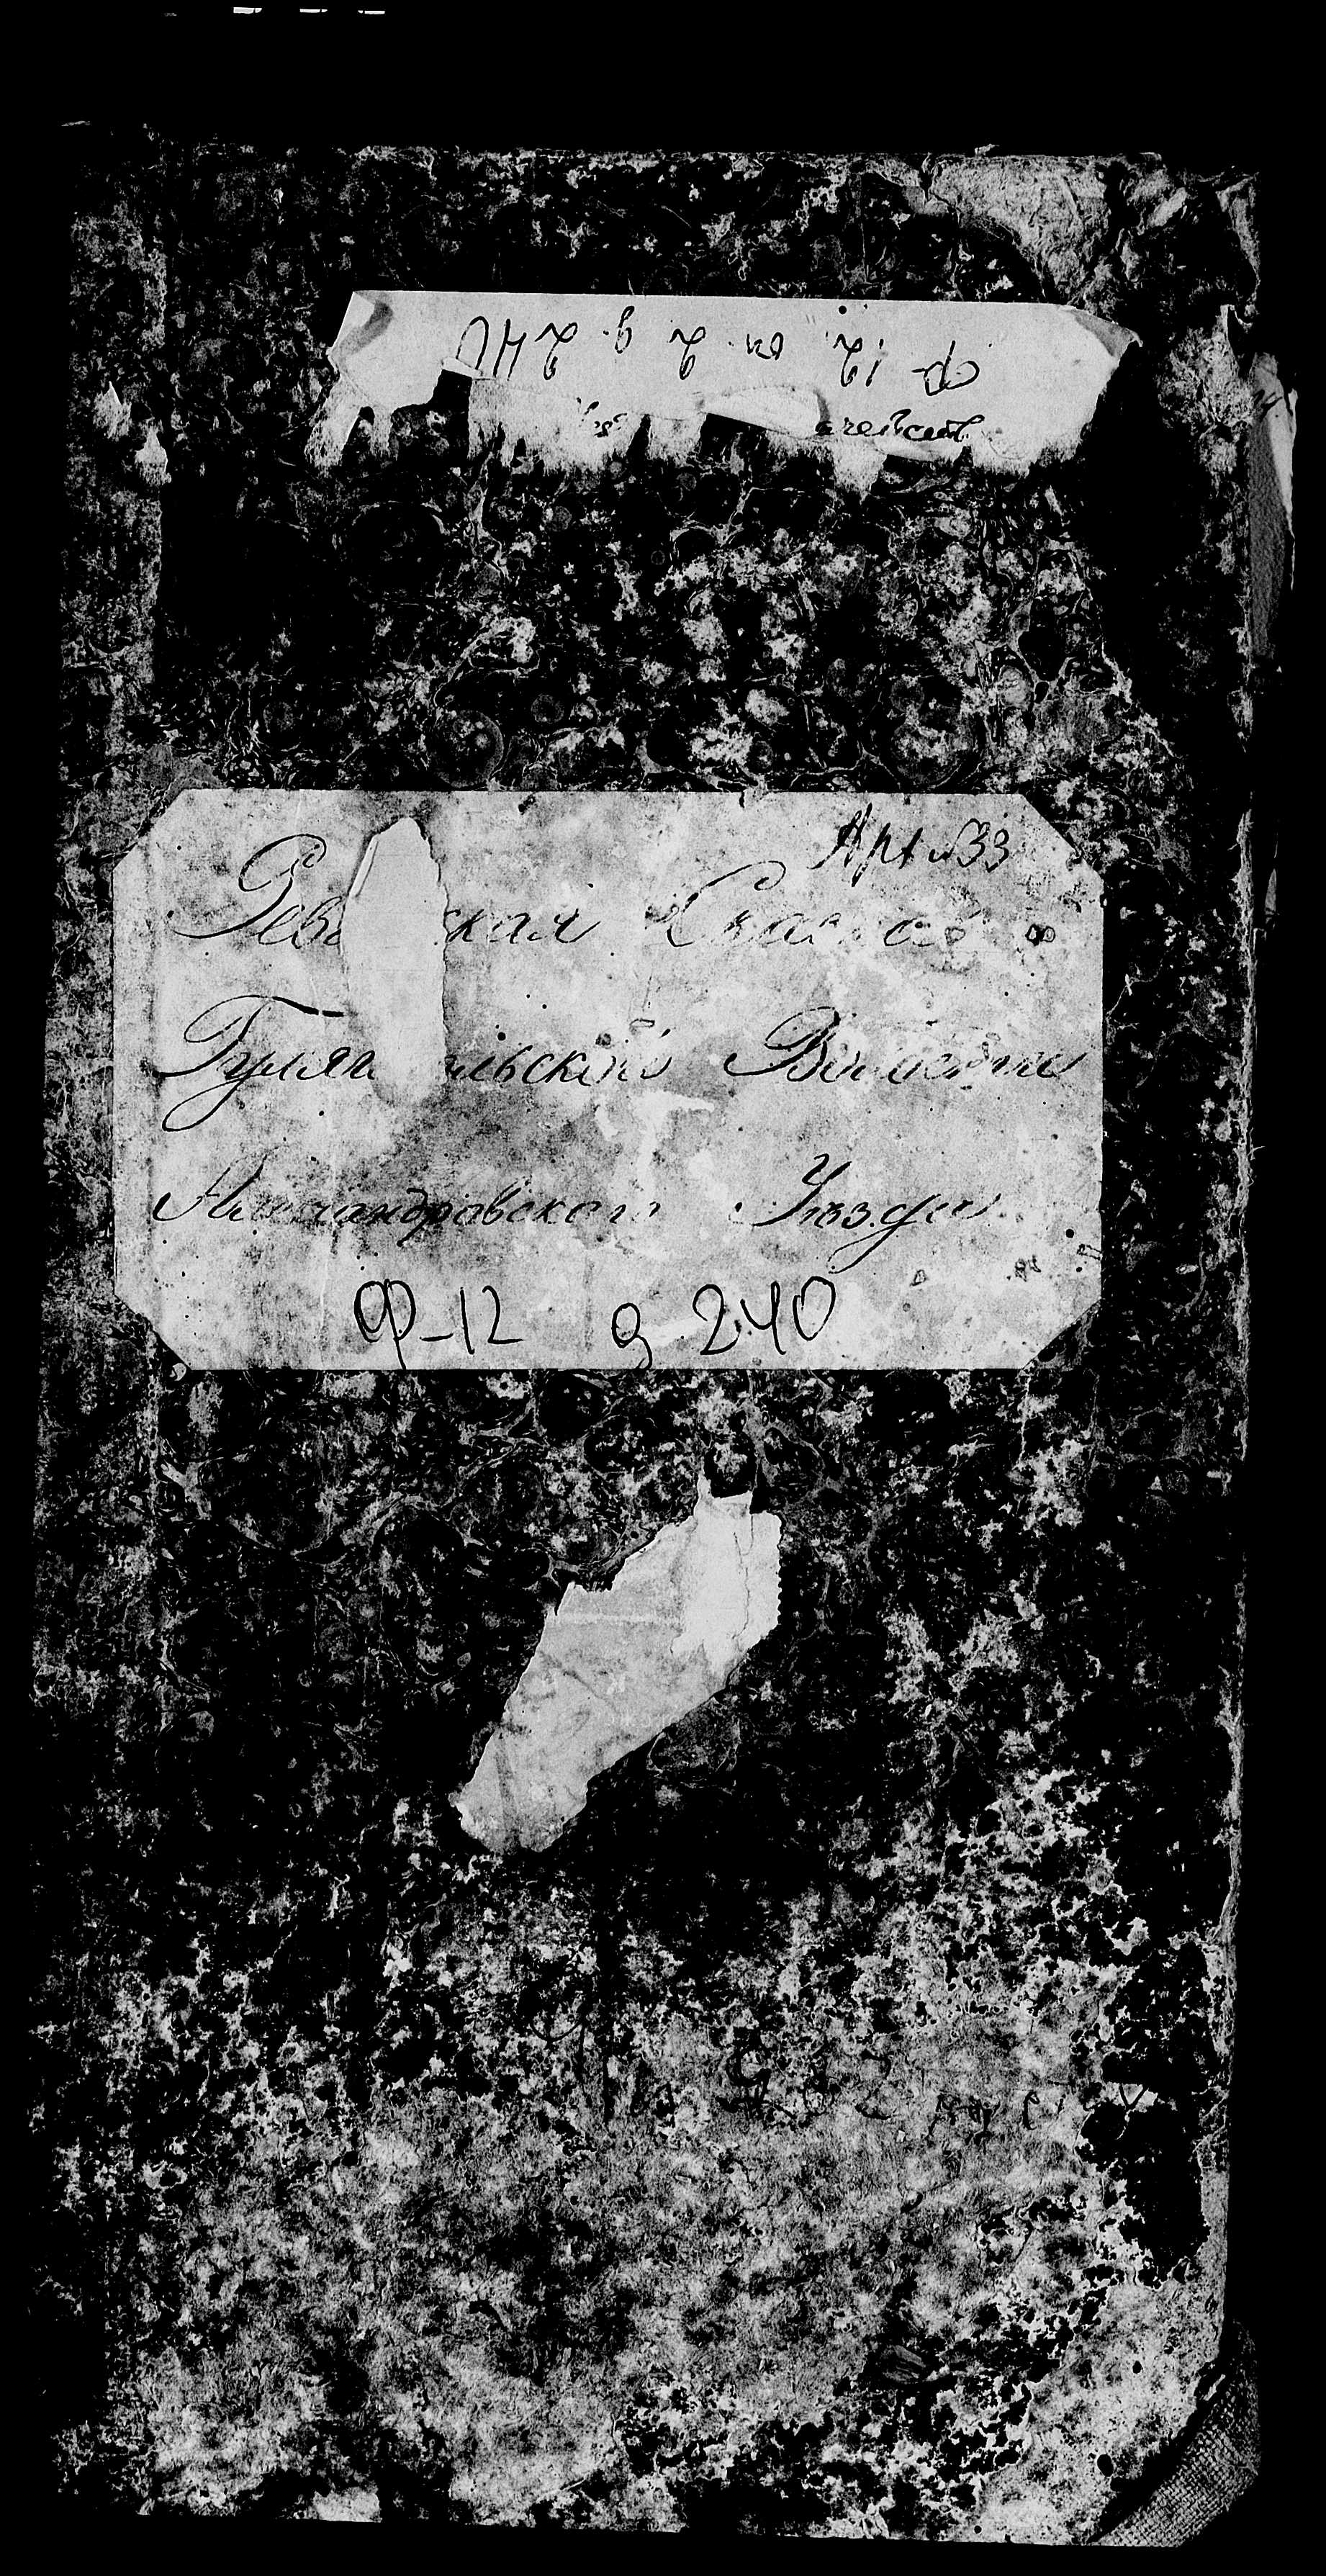 Ф-12. оп. 2 д. 240
Арх №33
Рев ская Сказка
Гуляй льской Волости
Александровского Уѣзда
Ф-12 д 240